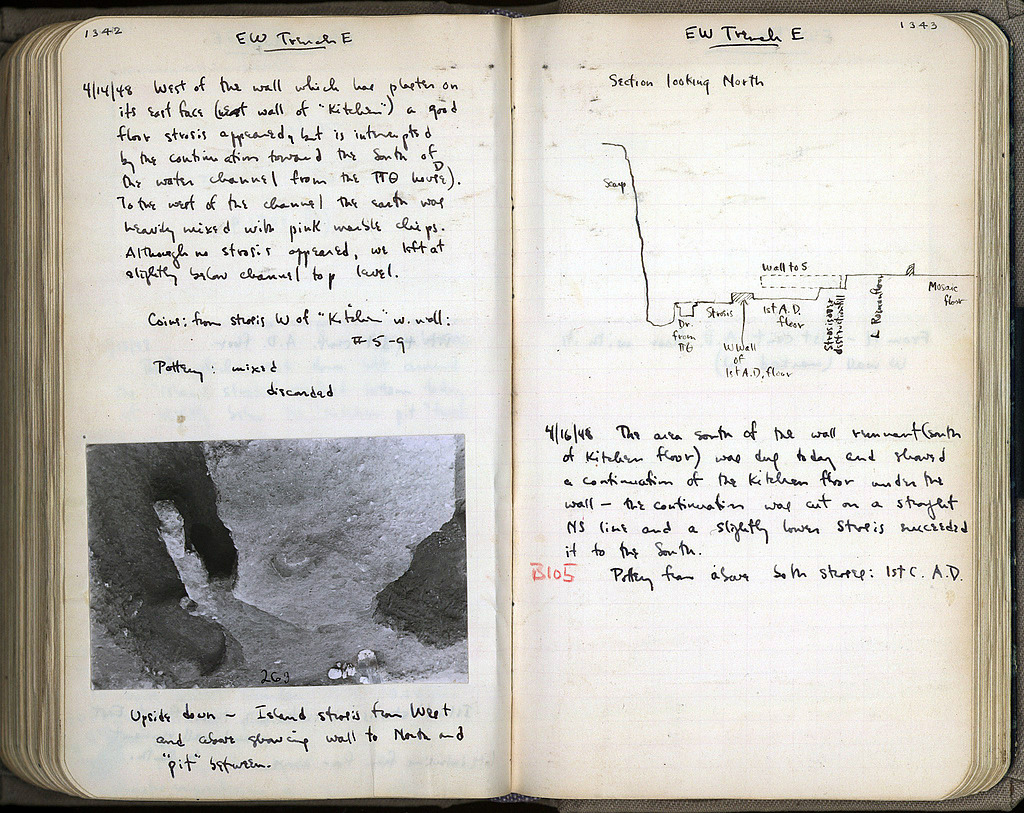 1342
EW Trench E
4/14/48 West of the wall which has plaster on
its east face (west wall of "Kitchen") a good
floor strosis appeared, but is interrupted
by the continuation toward the South of
the water channel from the TTG house D).
To the west of the channel the earth was
heavily mixed with pink marble chips.
Although no strosis appeared, we left at
slightly below channel top level.
Coins: from strosis W of "Kitchen" w. wall:
# 5-9
Pottery: mixed
discarded
263
Upside down - Island strosis from West
and above showing wall to North and
"pit" between.
1343
EW Trench E
Section looking North
Scarp
Wall to S
Mosaic
floor
Strosis
1st A.D.
floor
Dr.
from
TTG
W Wall
of
1st A.D. floor
Strosis over
destruction fill
L Roman floor
4/16/48 The area south of the wall remnant (south
of Kitchen floor) was dug today and showed
a continuation of the Kitchen floor under the
wall - the continuation was cut on a straight
NS line and a slightly lower strosis succeeded
it to the South.
B105 Pottery from above both stroses: 1st c. A.D.